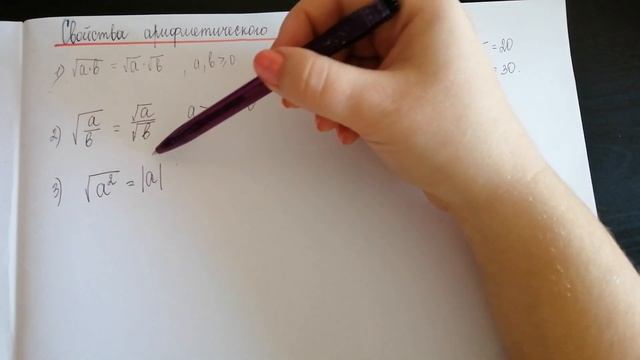 Свойства арифметического
1) √a·b = √a · √b , a, b ≥ 0
= 20
= 30.
2) √a/b = √a/√b a
3) √a² = |a|